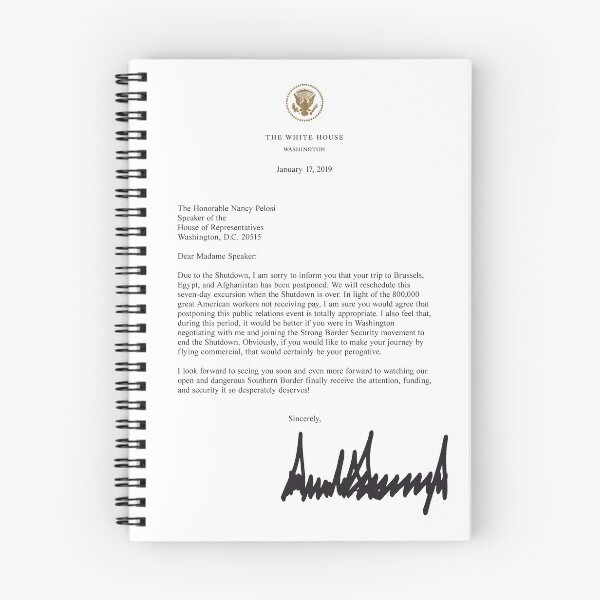 THE WHITE HOUSE
WASHINGTON
January 17, 2019
The Honorable Nancy Pelosi
Speaker of the
House of Representatives
Washington, D.C. 20515
Dear Madame Speaker:
Due to the Shutdown, I am sorry to inform you that your trip to Brussels,
Egypt, and Afghanistan has been postponed. We will reschedule this
seven-day excursion when the Shutdown is over. In light of the 800,000
great American workers not receiving pay, I am sure you would agree that
postponing this public relations event is totally appropriate. I also feel that,
during this period, it would be better if you were in Washington
negotiating with me and joining the Strong Border Security movement to
end the Shutdown. Obviously, if you would like to make your journey by
flying commercial, that would certainly be your perogative.
I look forward to seeing you soon and even more forward to watching our
open and dangerous Southern Border finally receive the attention, funding,
and security it so desperately deserves!
Sincerely,